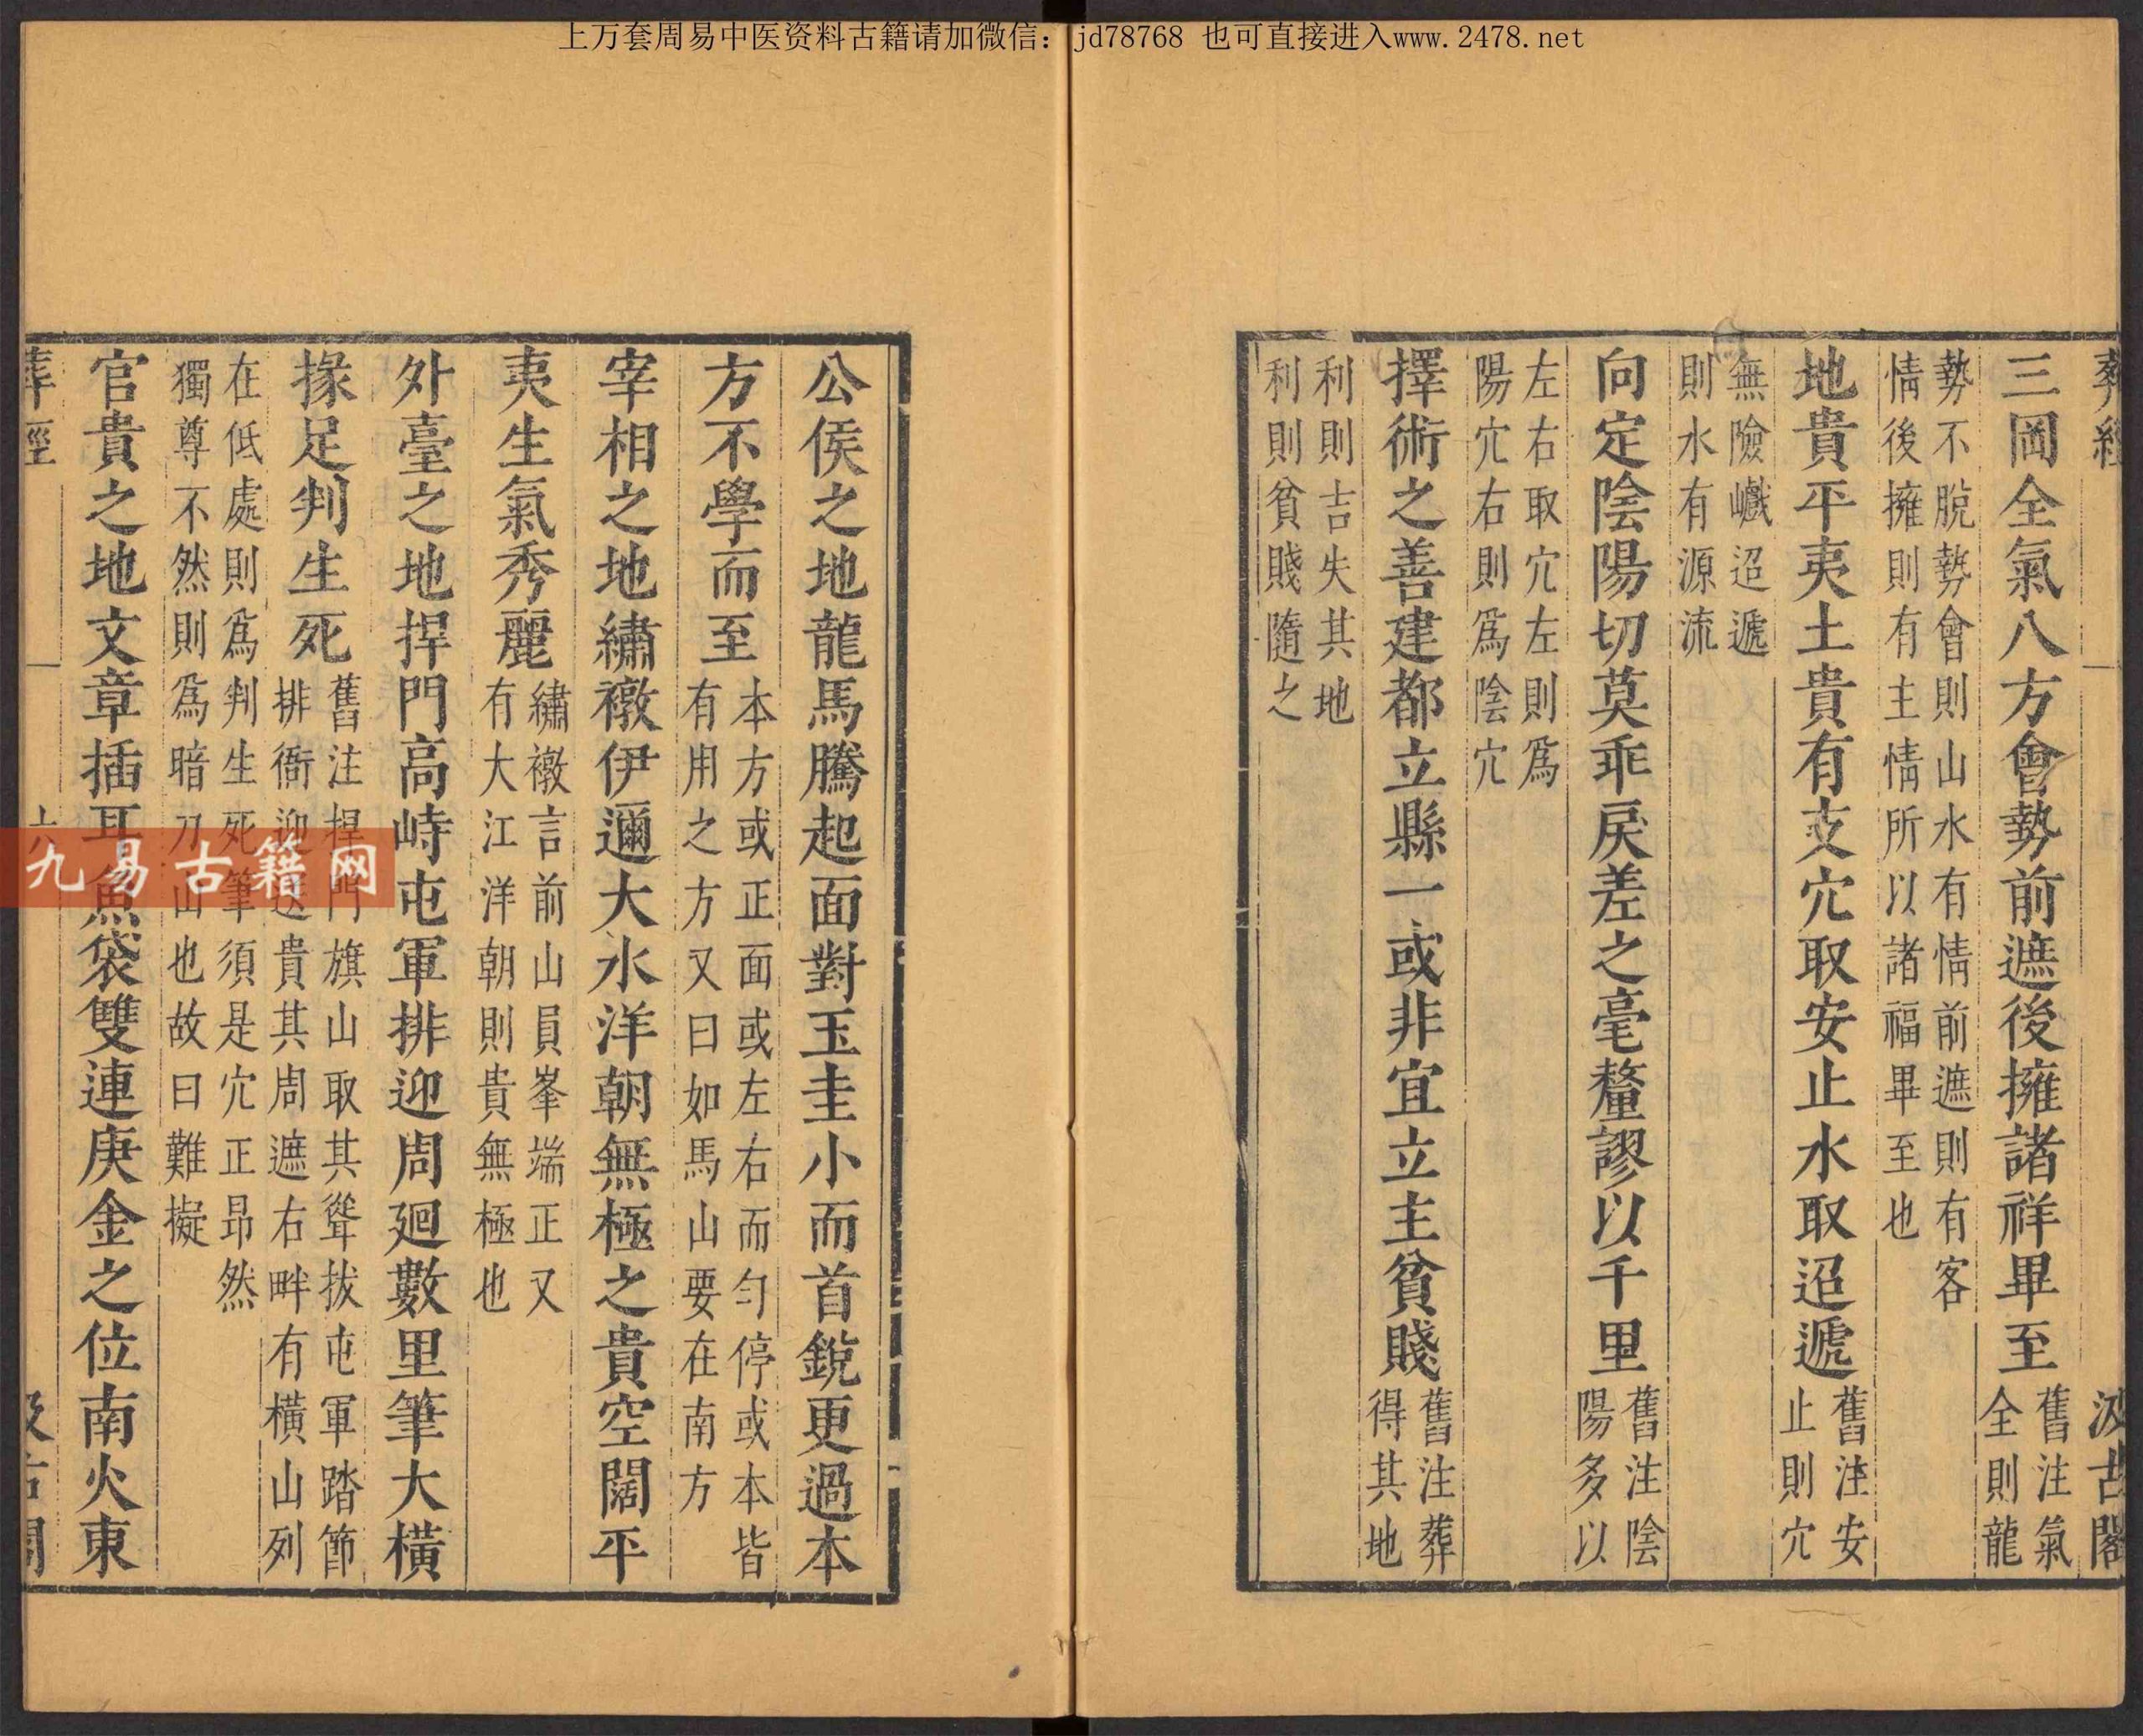 上万套周易中医资料古籍请加微信：jd78768 也可直接进入www.2478.net
葬經
汲古閣
三岡全氣八方會勢前遮後擁諸祥畢至
舊注氣
全則龍
勢不脫勢會則山水有情前遮則有客
情後擁則有主情所以諸福畢至也
地貴平夷土貴有支穴取安止水取迢遞
舊注安
止則穴
無險巇迢遞
則水有源流
向定陰陽切莫乖戾差之毫釐謬以千里
舊注陰
陽多以
左右取穴左則爲
陽穴右則爲陰穴
擇術之善建都立縣一或非宜立主貧賤
舊注葬
得其地
利則吉失其地
利則貧賤隨之
公侯之地龍馬騰起面對玉圭小而首銳更過本
方不學而至
本方或正面或左右而勻停或本皆
有用之方又曰如馬山要在南方
宰相之地繡襯伊邇大水洋朝無極之貴空闊平
夷生氣秀麗
繡襯言前山員峯端正又
有大江洋朝則貴無極也
外臺之地捍門高峙屯軍排迎周廻數里筆大橫
掾足判生死
舊注捍門旗山取其聳拔屯軍踏節
排衙迎送貴其周遮右畔有橫山列
在低處則爲判生死筆須是穴正昂然
獨尊不然則爲暗刀山也故曰難擬
官貴之地文章插耳魚袋雙連庚金之位南火東
葬經
六
汲古閣
九易古籍网